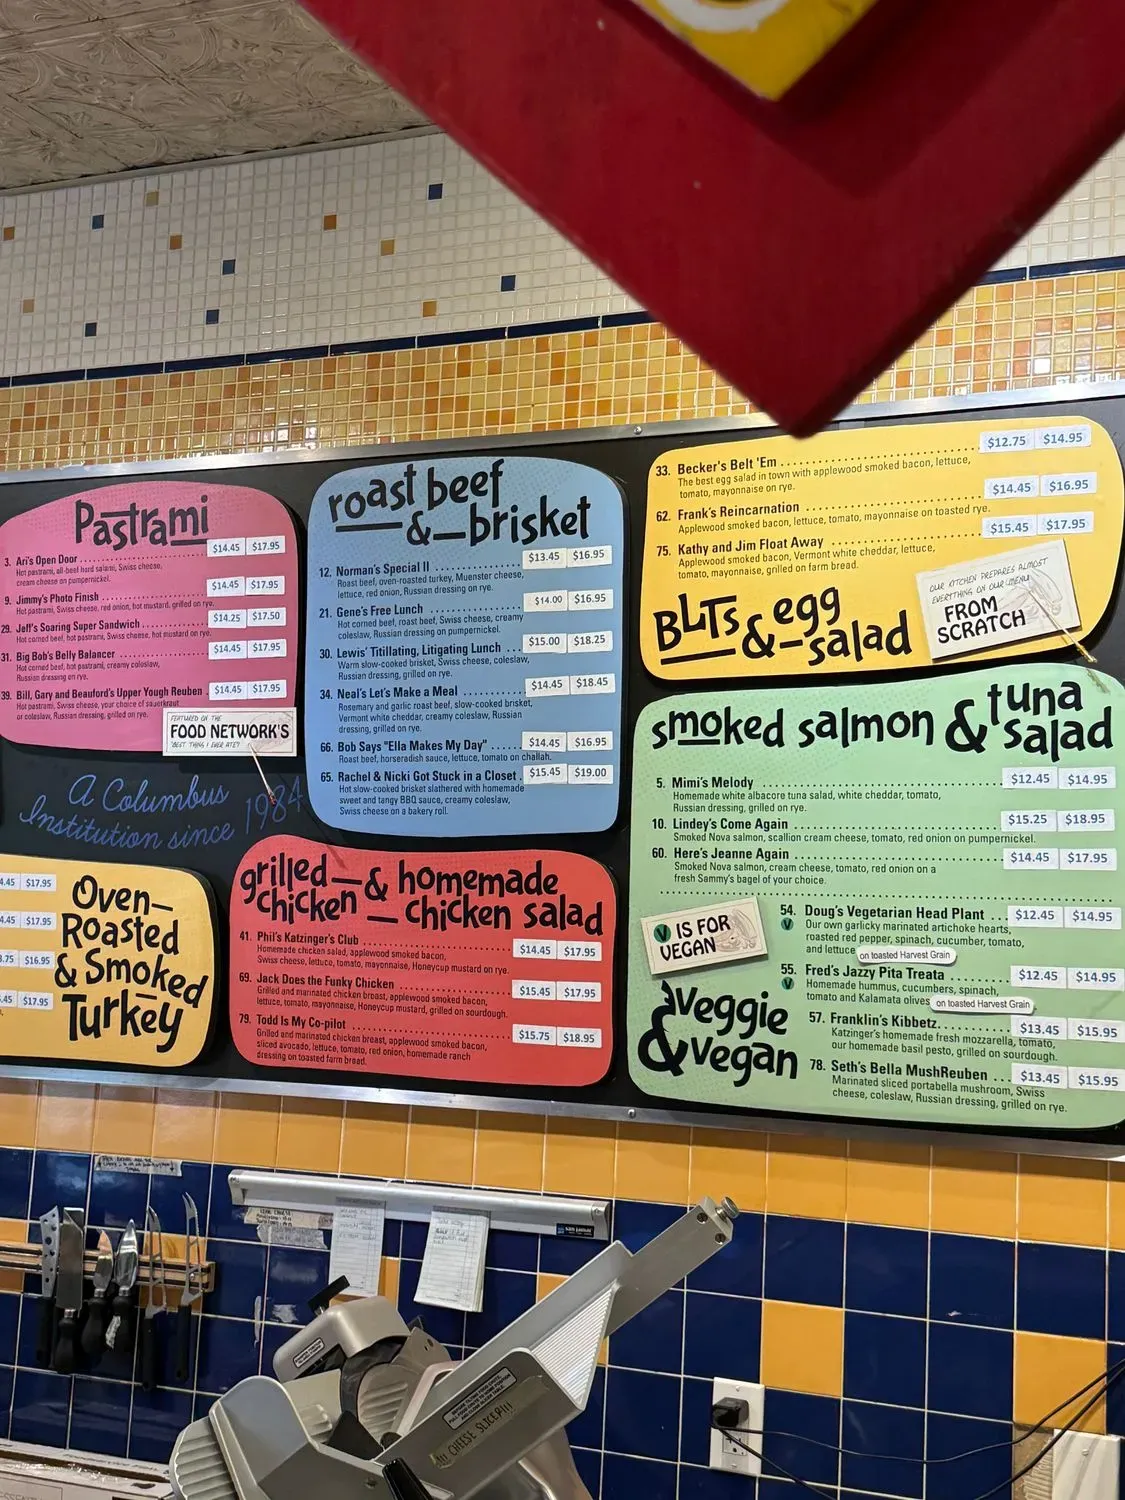 Pastrami
3. Ari's Open Door $14.45 $17.95
Hot pastrami, all-beef hard salami, Swiss cheese,
cream cheese on pumpernickel.
9. Jimmy's Photo Finish $14.45 $17.95
Hot pastrami, Swiss cheese, red onion, hot mustard, grilled on rye.
29. Jeff's Soaring Super Sandwich $14.25 $17.50
Hot corned beef, hot pastrami, Swiss cheese, hot mustard on rye.
31. Big Bob's Belly Balancer $14.45 $17.95
Hot corned beef, hot pastrami, creamy coleslaw,
Russian dressing on rye.
39. Bill, Gary and Beauford's Upper Yough Reuben $14.45 $17.95
Hot pastrami, Swiss cheese, your choice of sauerkraut
or coleslaw, Russian dressing, grilled on rye.
FEATURED ON THE
FOOD NETWORK'S
"BEST THING I EVER ATE!"
A Columbus
Institution since 1984
4.45 $17.95
4.45 $17.95
3.75 $16.95
.45 $17.95
Oven-
Roasted
& Smoked
Turkey
roast beef
& brisket
12. Norman's Special II $13.45 $16.95
Roast beef, oven-roasted turkey, Muenster cheese,
lettuce, red onion, Russian dressing on rye.
21. Gene's Free Lunch $14.00 $16.95
Hot corned beef, roast beef, Swiss cheese, creamy
coleslaw, Russian dressing on pumpernickel.
30. Lewis' Titillating, Litigating Lunch $15.00 $18.25
Warm slow-cooked brisket, Swiss cheese, coleslaw,
Russian dressing, grilled on rye.
34. Neal's Let's Make a Meal $14.45 $18.45
Rosemary and garlic roast beef, slow-cooked brisket,
Vermont white cheddar, creamy coleslaw, Russian
dressing, grilled on rye.
66. Bob Says "Ella Makes My Day" $14.45 $16.95
Roast beef, horseradish sauce, lettuce, tomato on challah.
65. Rachel & Nicki Got Stuck in a Closet $15.45 $19.00
Hot slow-cooked brisket slathered with homemade
sweet and tangy BBQ sauce, creamy coleslaw,
Swiss cheese on a bakery roll.
grilled & homemade
chicken chicken salad
41. Phil's Katzinger's Club $14.45 $17.95
Homemade chicken salad, applewood smoked bacon,
Swiss cheese, lettuce, tomato, mayonnaise, Honeycup mustard on rye.
69. Jack Does the Funky Chicken $15.45 $17.95
Grilled and marinated chicken breast, applewood smoked bacon,
lettuce, tomato, mayonnaise, Honeycup mustard, grilled on sourdough.
79. Todd Is My Co-pilot $15.75 $18.95
Grilled and marinated chicken breast, applewood smoked bacon,
sliced avocado, lettuce, tomato, red onion, homemade ranch
dressing on toasted farm bread.
33. Becker's Belt 'Em $12.75 $14.95
The best egg salad in town with applewood smoked bacon, lettuce,
tomato, mayonnaise on rye.
62. Frank's Reincarnation $14.45 $16.95
Applewood smoked bacon, lettuce, tomato, mayonnaise on toasted rye.
75. Kathy and Jim Float Away $15.45 $17.95
Applewood smoked bacon, Vermont white cheddar, lettuce,
tomato, mayonnaise, grilled on farm bread.
BLTs & egg
salad
OUR KITCHEN PREPARES ALMOST
EVERYTHING ON OUR MENU
FROM
SCRATCH
smoked salmon & tuna
salad
5. Mimi's Melody $12.45 $14.95
Homemade white albacore tuna salad, white cheddar, tomato,
Russian dressing, grilled on rye.
10. Lindey's Come Again $15.25 $18.95
Smoked Nova salmon, scallion cream cheese, tomato, red onion on pumpernickel.
60. Here's Jeanne Again $14.45 $17.95
Smoked Nova salmon, cream cheese, tomato, red onion on a
fresh Sammy's bagel of your choice.
V IS FOR
VEGAN
veggie
& vegan
54. Doug's Vegetarian Head Plant $12.45 $14.95
V Our own garlicky marinated artichoke hearts,
roasted red pepper, spinach, cucumber, tomato,
and lettuce on toasted Harvest Grain
55. Fred's Jazzy Pita Treata $12.45 $14.95
V Homemade hummus, cucumbers, spinach,
tomato and Kalamata olives on toasted Harvest Grain
57. Franklin's Kibbetz $13.45 $15.95
Katzinger's homemade fresh mozzarella, tomato,
our homemade basil pesto, grilled on sourdough.
78. Seth's Bella MushReuben $13.45 $15.95
Marinated sliced portabella mushroom, Swiss
cheese, coleslaw, Russian dressing, grilled on rye.
CHEESE SLICER!!!